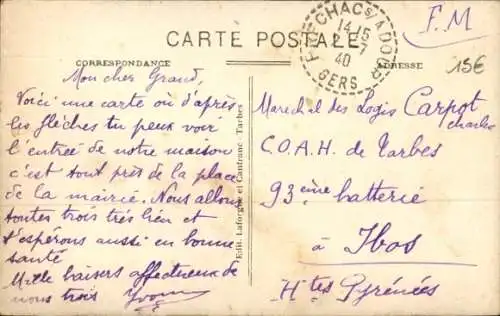 CARTE POSTALE
F.M
CHACS/ADOUR
14 15
40
GERS
CORRESPONDANCE
ADRESSE
15€
Mon cher Grand,
Voici une carte où d'après
les flèches tu peux voir
l'entrée de notre maison
c'est tout près de la place
de la mairie. Nous allons
toutes trois très bien et
t'espérons aussi en bonne
santé
Mille baisers affectueux de
nous trois Yvonne
Edit. Laforgue et Cantranc - Tarbes
Marechal des Logis Carpot
Charles
C.O.A.H. de Tarbes
93ème batterie
à Ibos
Htes Pyrénées